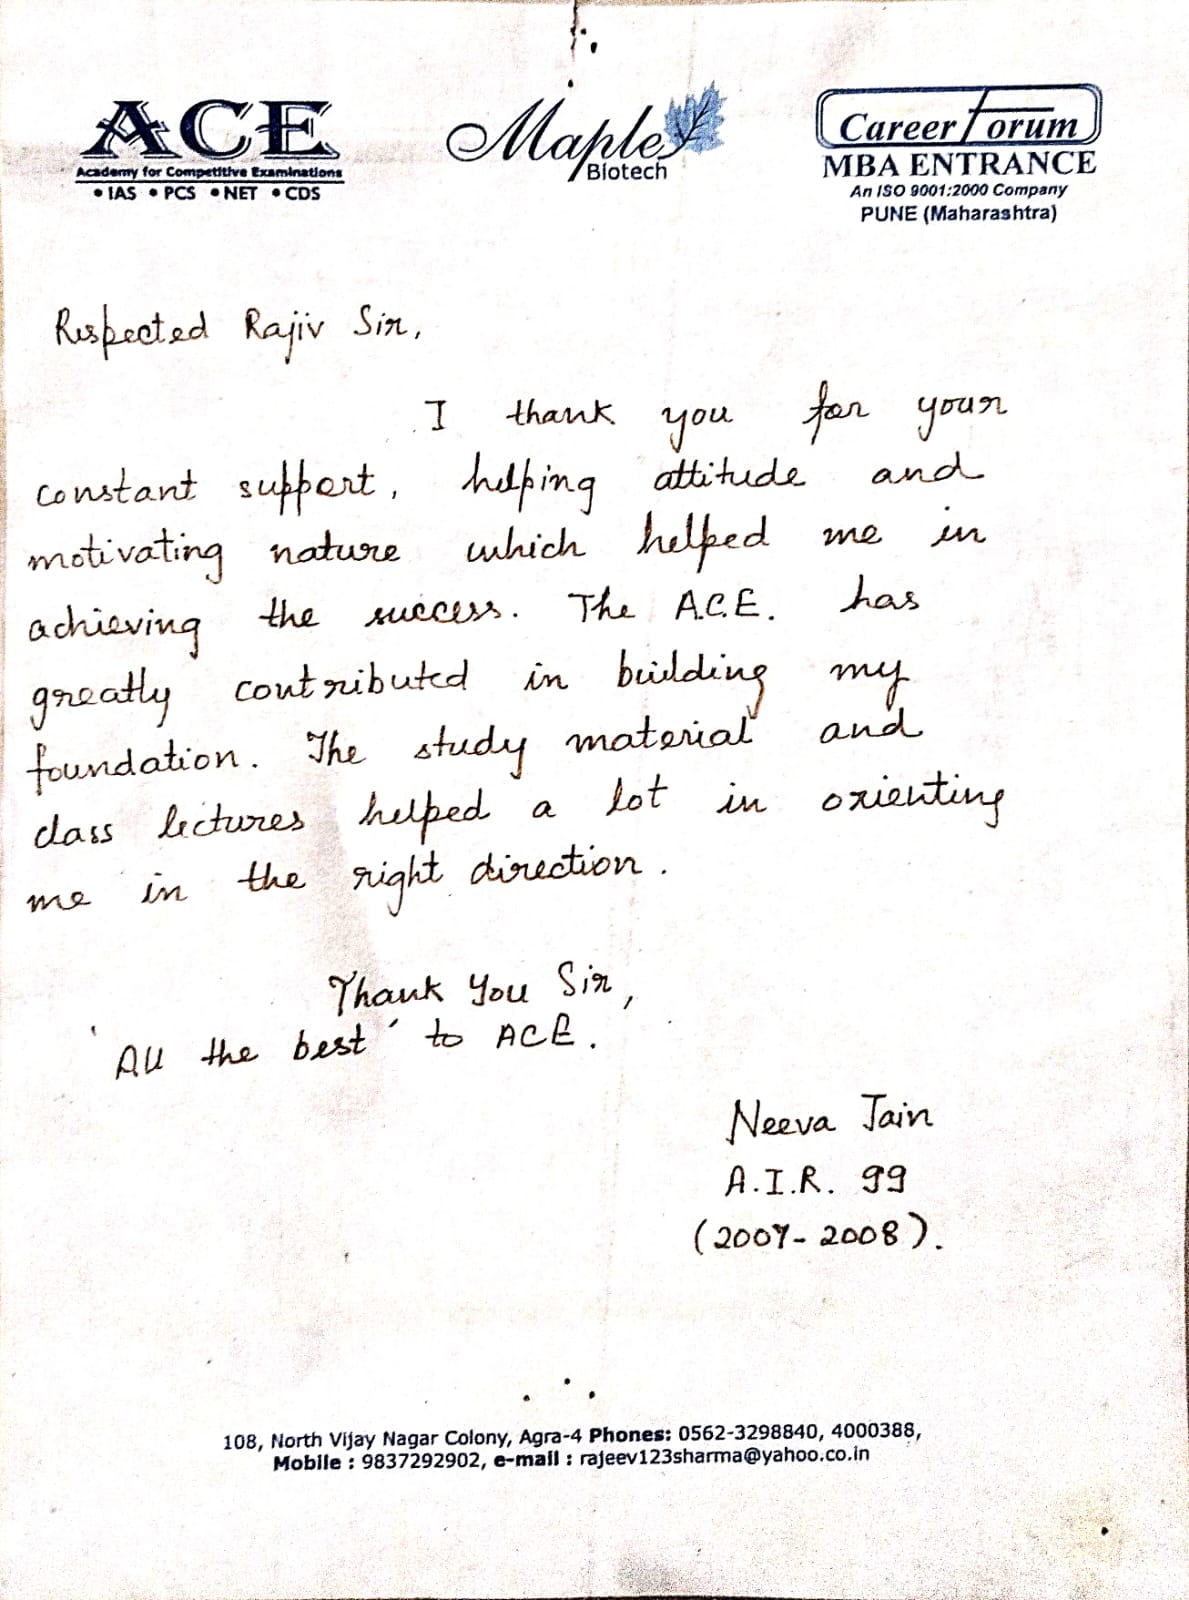 ACE
Academy for Competitive Examinations
• IAS • PCS • NET • CDS
Maple
Biotech
Career Forum
MBA ENTRANCE
An ISO 9001:2000 Company
PUNE (Maharashtra)
Respected Rajiv Sir,
I thank you for your
constant support, helping attitude and
motivating nature which helped me in
achieving the success. The A.C.E. has
greatly contributed in building my
foundation. The study material and
class lectures helped a lot in orienting
me in the right direction.
Thank You Sir,
'All the best' to ACE.
Neeva Jain
A.I.R. 99
(2007-2008).
108, North Vijay Nagar Colony, Agra-4 Phones: 0562-3298840, 4000388,
Mobile : 9837292902, e-mail : rajeev123sharma@yahoo.co.in